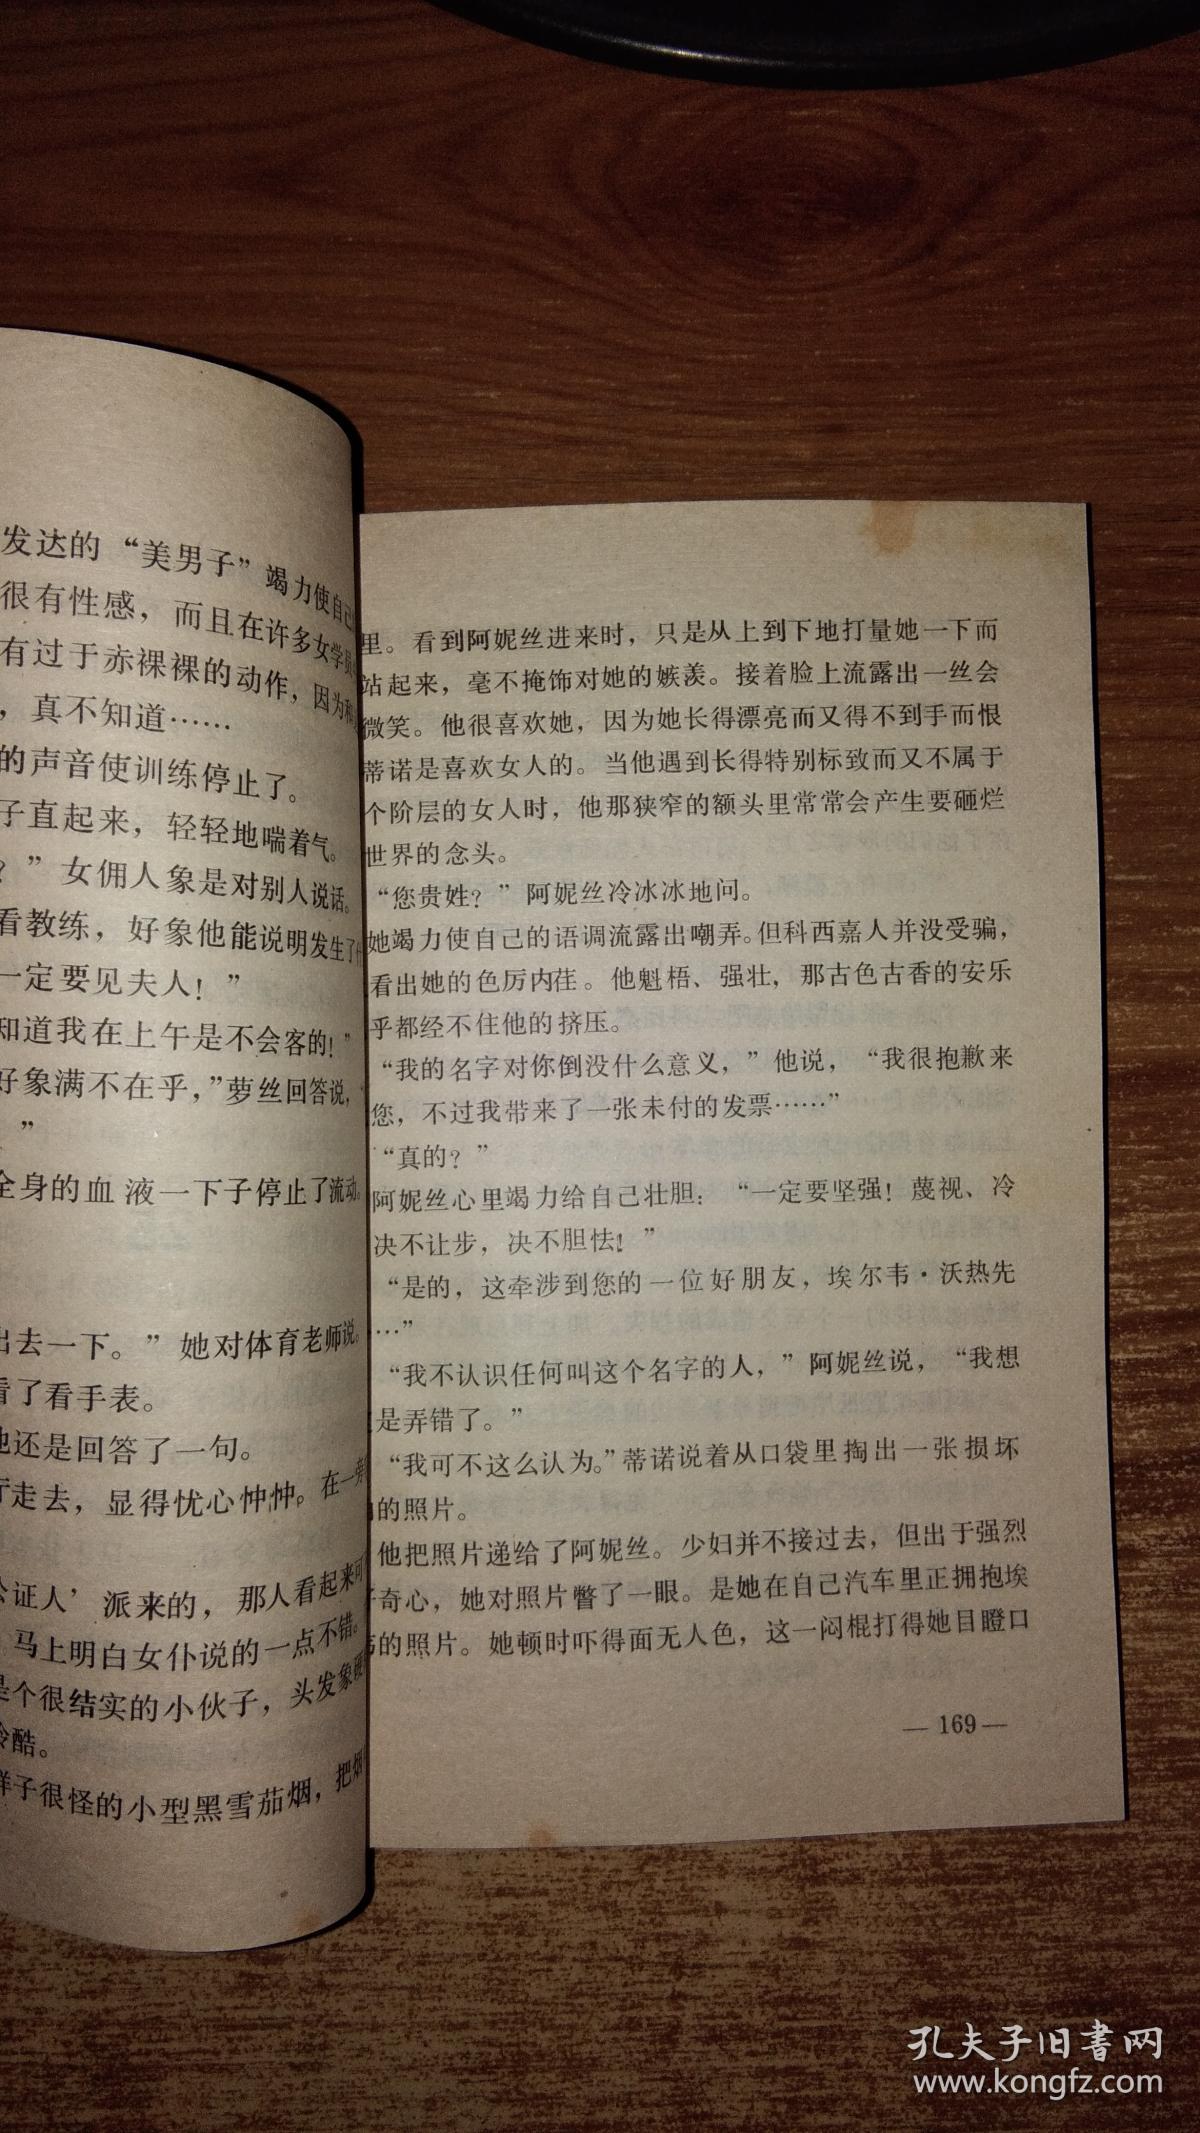 发达的“美男子”竭力使自己
很有性感，而且在许多女学员
有过于赤裸裸的动作，因为和
，真不知道……
的声音使训练停止了。
子直起来，轻轻地喘着气。
？”女佣人象是对别人说话。
看教练，好象他能说明发生了什
一定要见夫人！”
知道我在上午是不会客的！”
好象满不在乎，”萝丝回答说，
。”
全身的血液一下子停止了流动。
出去一下。”她对体育老师说。
看了看手表。
他还是回答了一句。
厅走去，显得忧心忡忡。在一旁
公证人’派来的，那人看起来可
马上明白女仆说的一点不错。
是个很结实的小伙子，头发象
冷酷。
样子很怪的小型黑雪茄烟，把烟
里。看到阿妮丝进来时，只是从上到下地打量她一下而
站起来，毫不掩饰对她的嫉羡。接着脸上流露出一丝会
微笑。他很喜欢她，因为她长得漂亮而又得不到手而恨
蒂诺是喜欢女人的。当他遇到长得特别标致而又不属于
个阶层的女人时，他那狭窄的额头里常常会产生要砸烂
世界的念头。
“您贵姓？”阿妮丝冷冰冰地问。
她竭力使自己的语调流露出嘲弄。但科西嘉人并没受骗，
看出她的色厉内荏。他魁梧、强壮，那古色古香的安乐
乎都经不住他的挤压。
“我的名字对你倒没什么意义，”他说，“我很抱歉来
您，不过我带来了一张未付的发票……”
“真的？”
阿妮丝心里竭力给自己壮胆：“一定要坚强！蔑视、冷
决不让步，决不胆怯！”
“是的，这牵涉到您的一位好朋友，埃尔韦·沃热先
…”
“我不认识任何叫这个名字的人，”阿妮丝说，“我想
是弄错了。”
“我可不这么认为。”蒂诺说着从口袋里掏出一张损坏
的照片。
他把照片递给了阿妮丝。少妇并不接过去，但出于强烈
奇心，她对照片瞥了一眼。是她在自己汽车里正拥抱埃
的照片。她顿时吓得面无人色，这一闷棍打得她目瞪口
—169—
孔夫子旧书网
www.kongfz.com